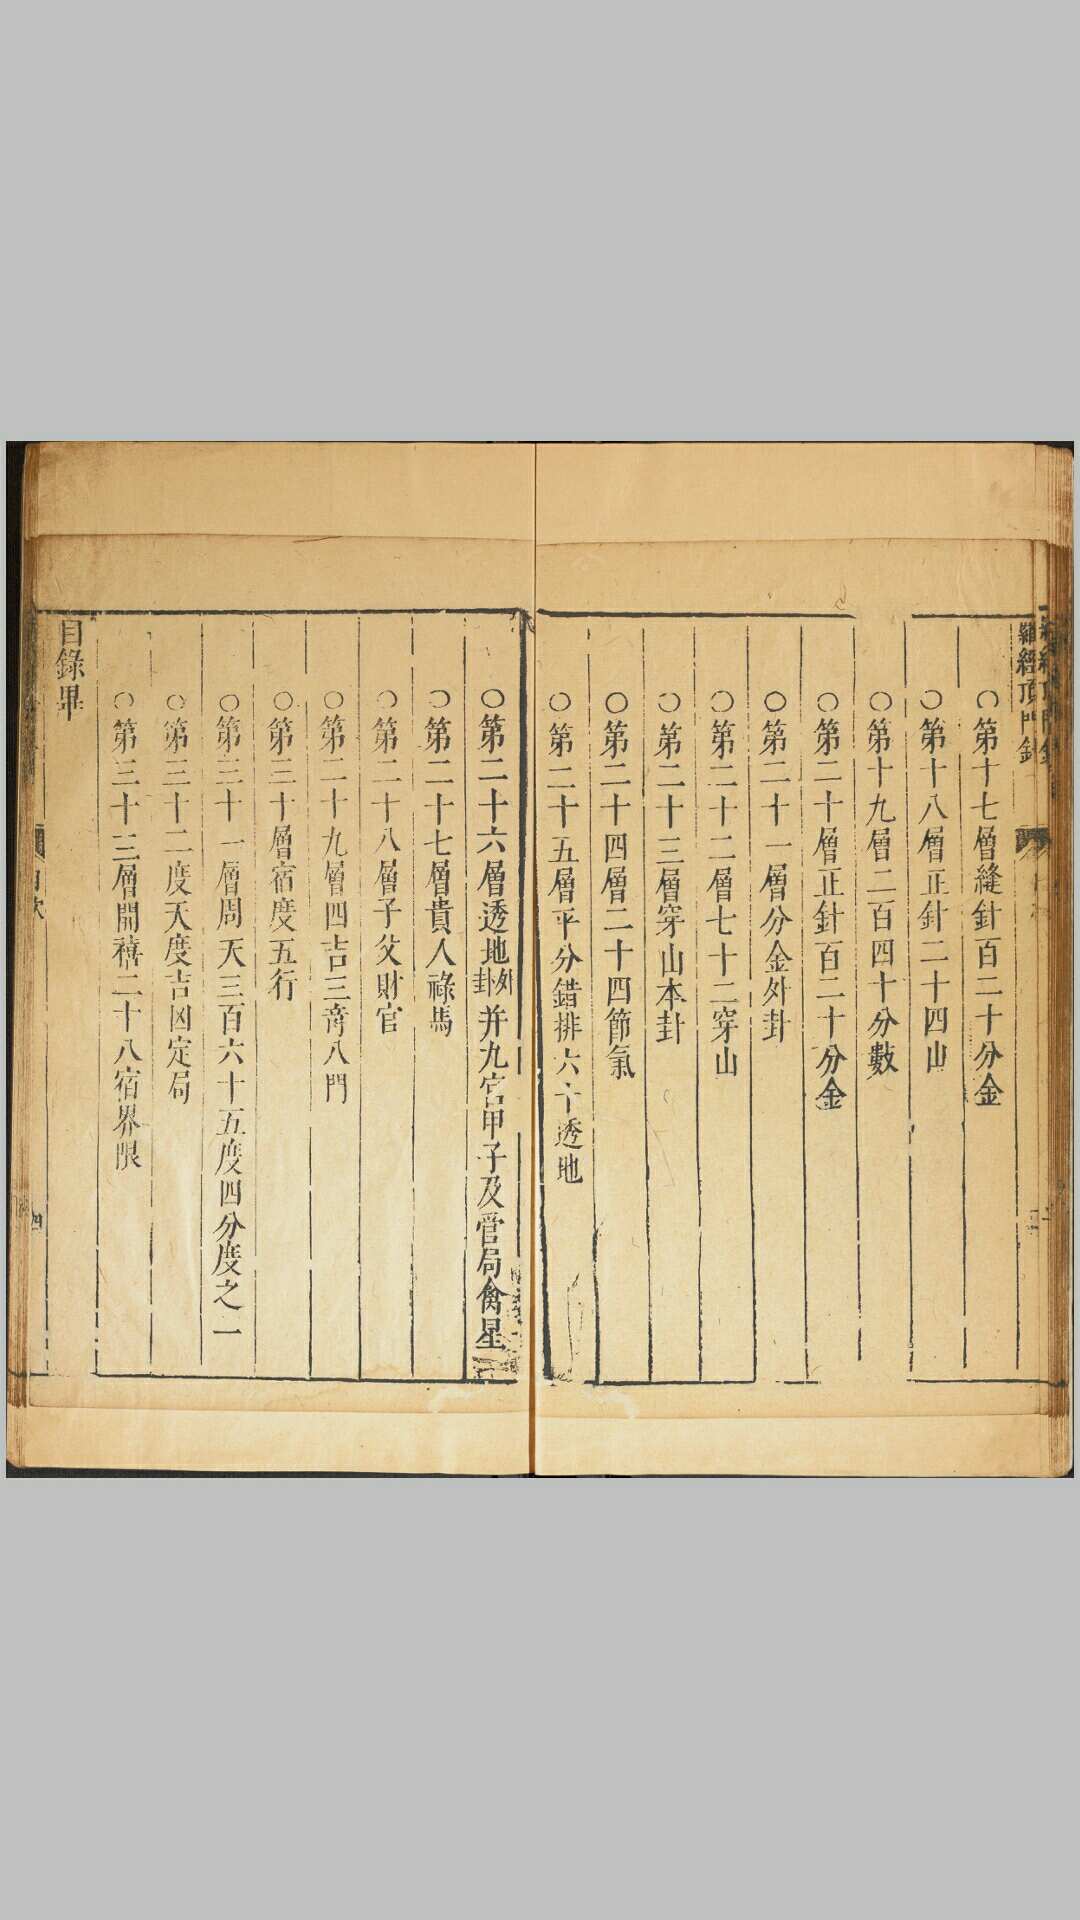 羅經頂門針
○第十七層縫針百二十分金
○第十八層正針二十四山
○第十九層二百四十分數
○第二十層正針百二十分金
○第二十一層分金外卦
○第二十二層七十二穿山
○第二十三層穿山本卦
○第二十四層二十四節氣
○第二十五層平分錯排六十透地
○第二十六層透地外卦并九宮甲子及管局禽星
○第二十七層貴人祿馬
○第二十八層子父財官
○第二十九層四吉三奇八門
○第三十層宿度五行
○第三十一層周天三百六十五度四分度之一
○第三十二度天度吉凶定局
○第三十三層開禧二十八宿界限
目錄畢
目次
四